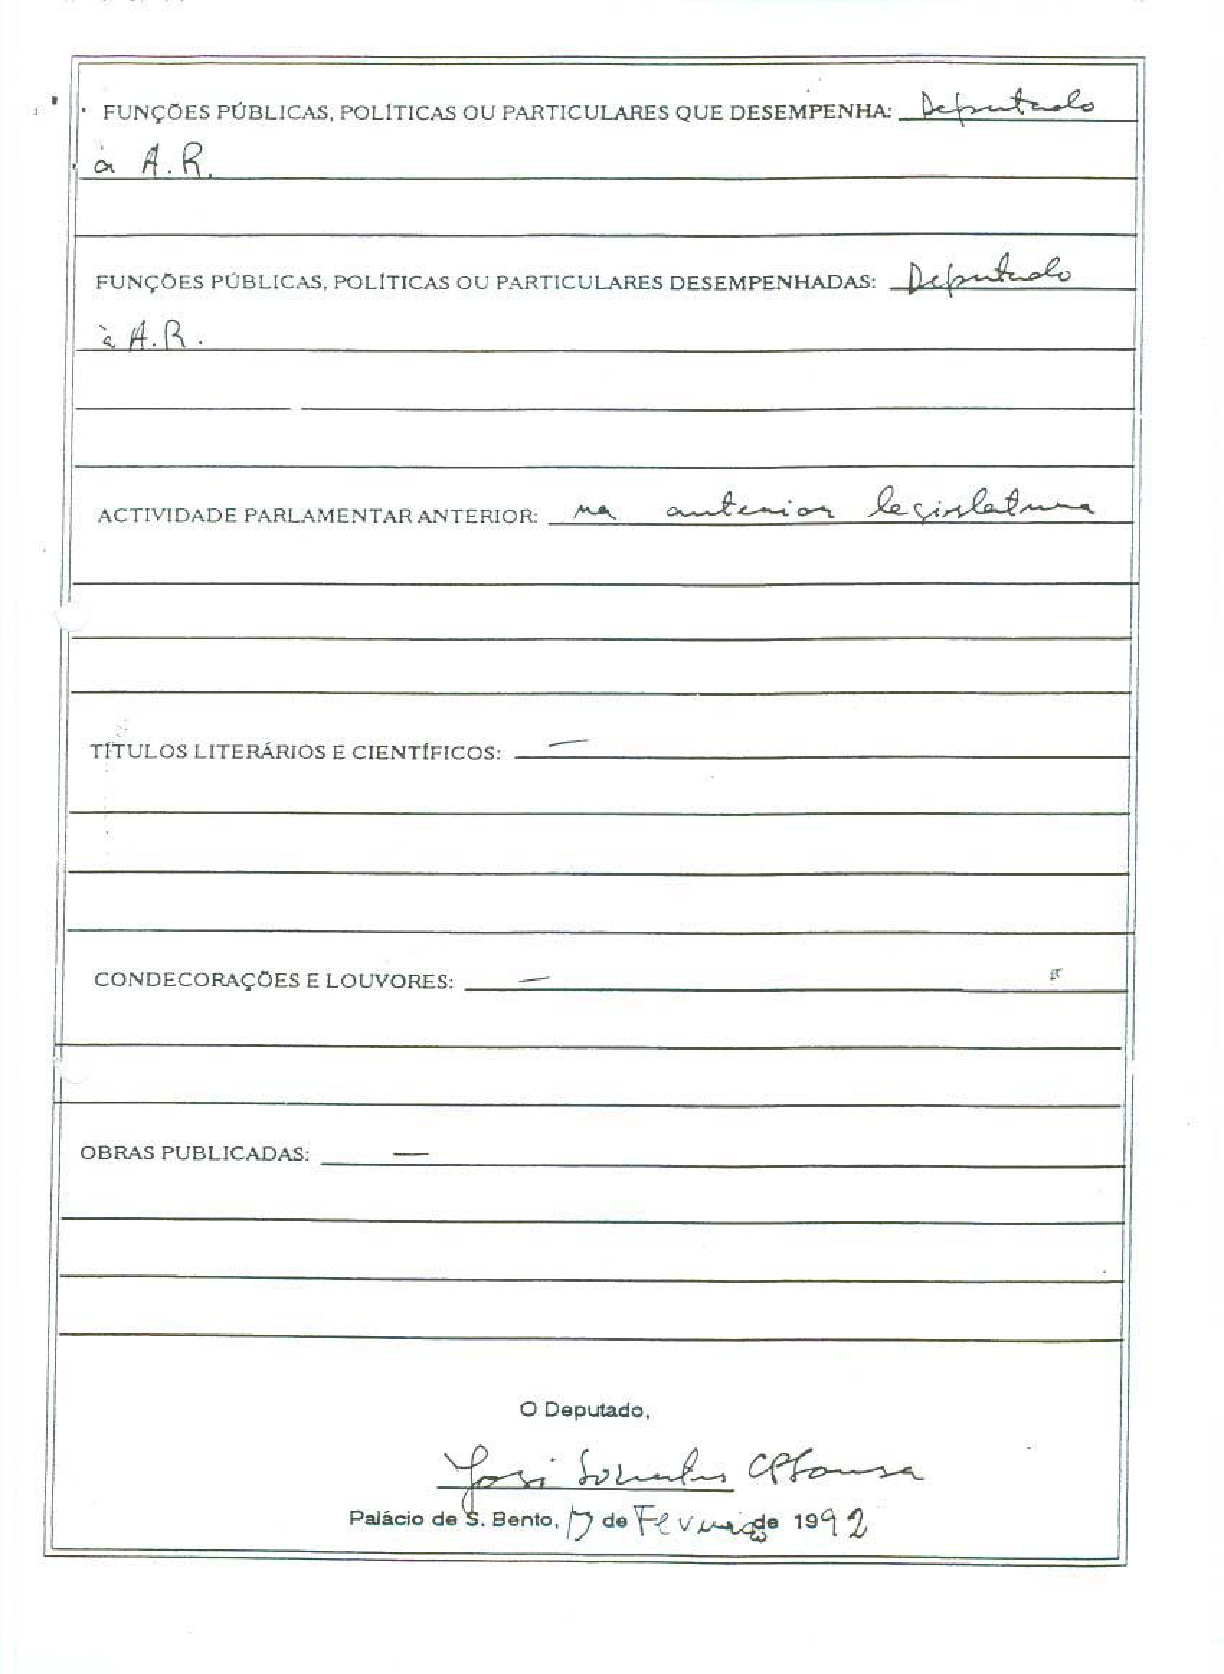 FUNÇÕES PÚBLICAS, POLÍTICAS OU PARTICULARES QUE DESEMPENHA: Deputado
à A.R.
FUNÇÕES PÚBLICAS, POLÍTICAS OU PARTICULARES DESEMPENHADAS: Deputado
à A.R.
ACTIVIDADE PARLAMENTAR ANTERIOR: na anterior legislatura
TÍTULOS LITERÁRIOS E CIENTÍFICOS: —
CONDECORAÇÕES E LOUVORES: —
OBRAS PUBLICADAS: —
O Deputado,
José Sousa
Palácio de S. Bento, 17 de Fevereiro de 1992